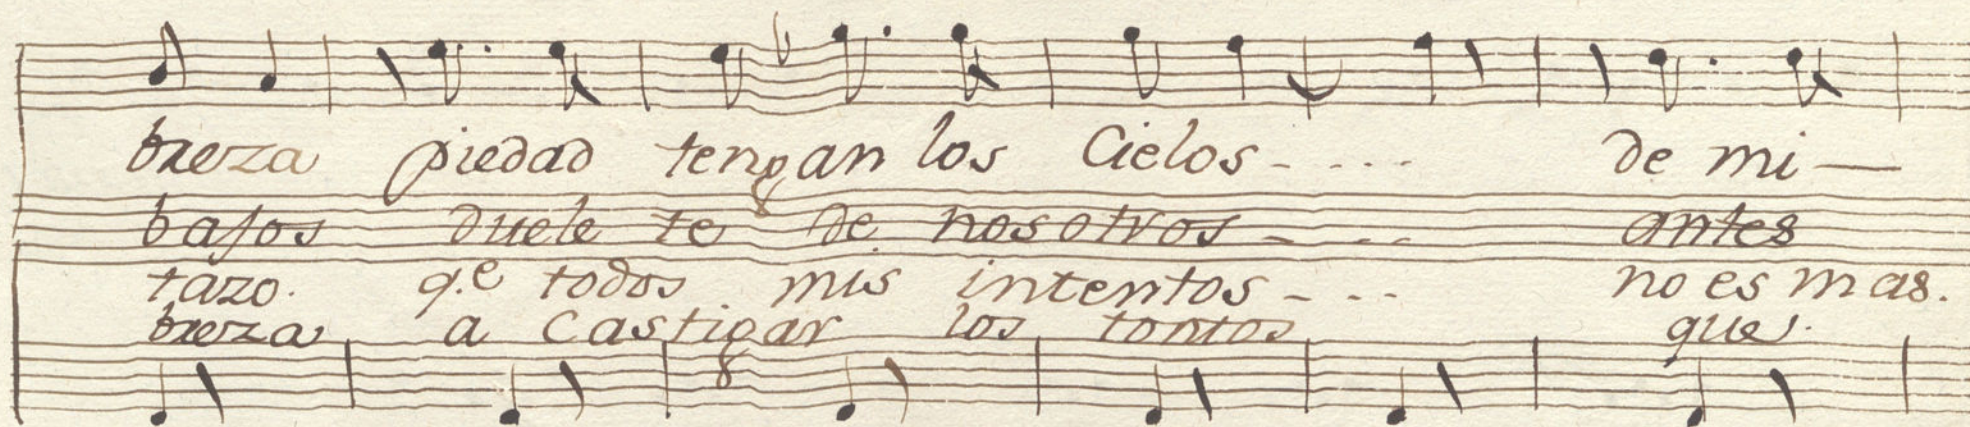 breza piedad tengan los Cielos - - - - de mi —
bajos duele te de nosotros - - - antes
tazo. q.e todos mis intentos - - - no es mas.
breza a castigar los tontos que.